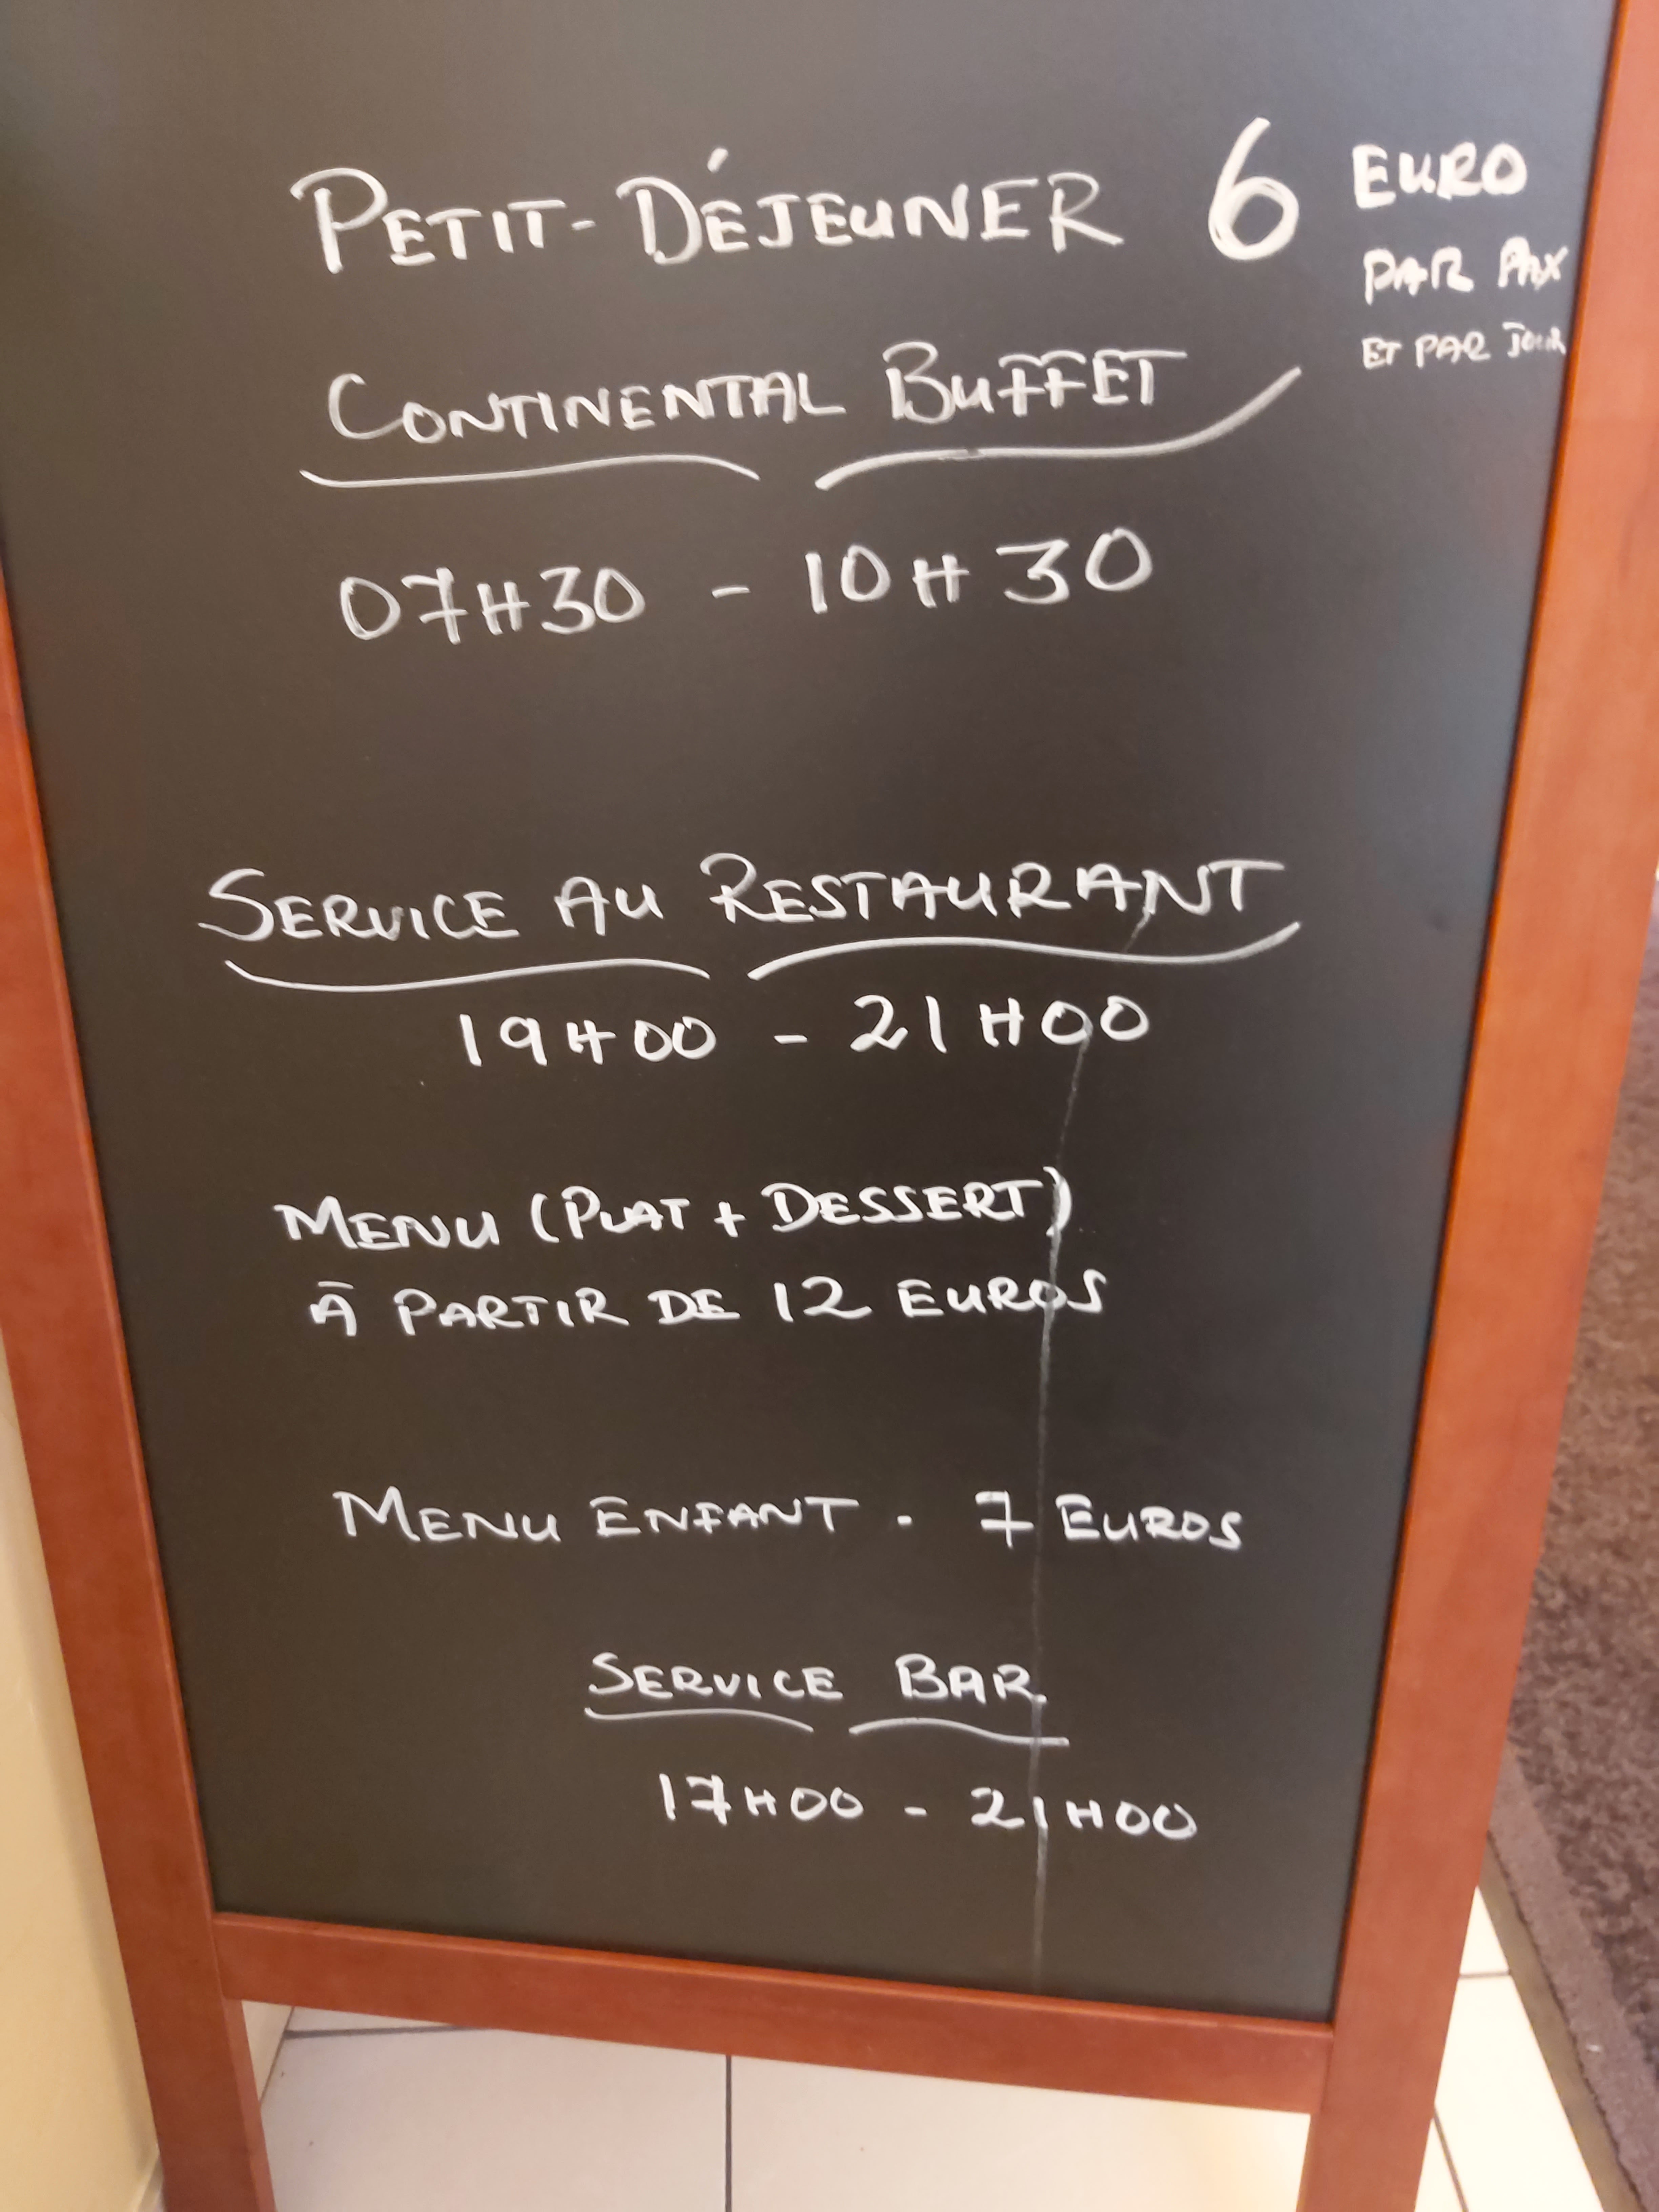 PETIT-DÉJEUNER 6 EURO
PAR PAX
ET PAR JOUR
CONTINENTAL BUFFET
07H30 - 10H30
SERVICE AU RESTAURANT
19H00 - 21H00
MENU (PLAT + DESSERT)
À PARTIR DE 12 EUROS
MENU ENFANT . 7 EUROS
SERVICE BAR
17H00 - 21H00